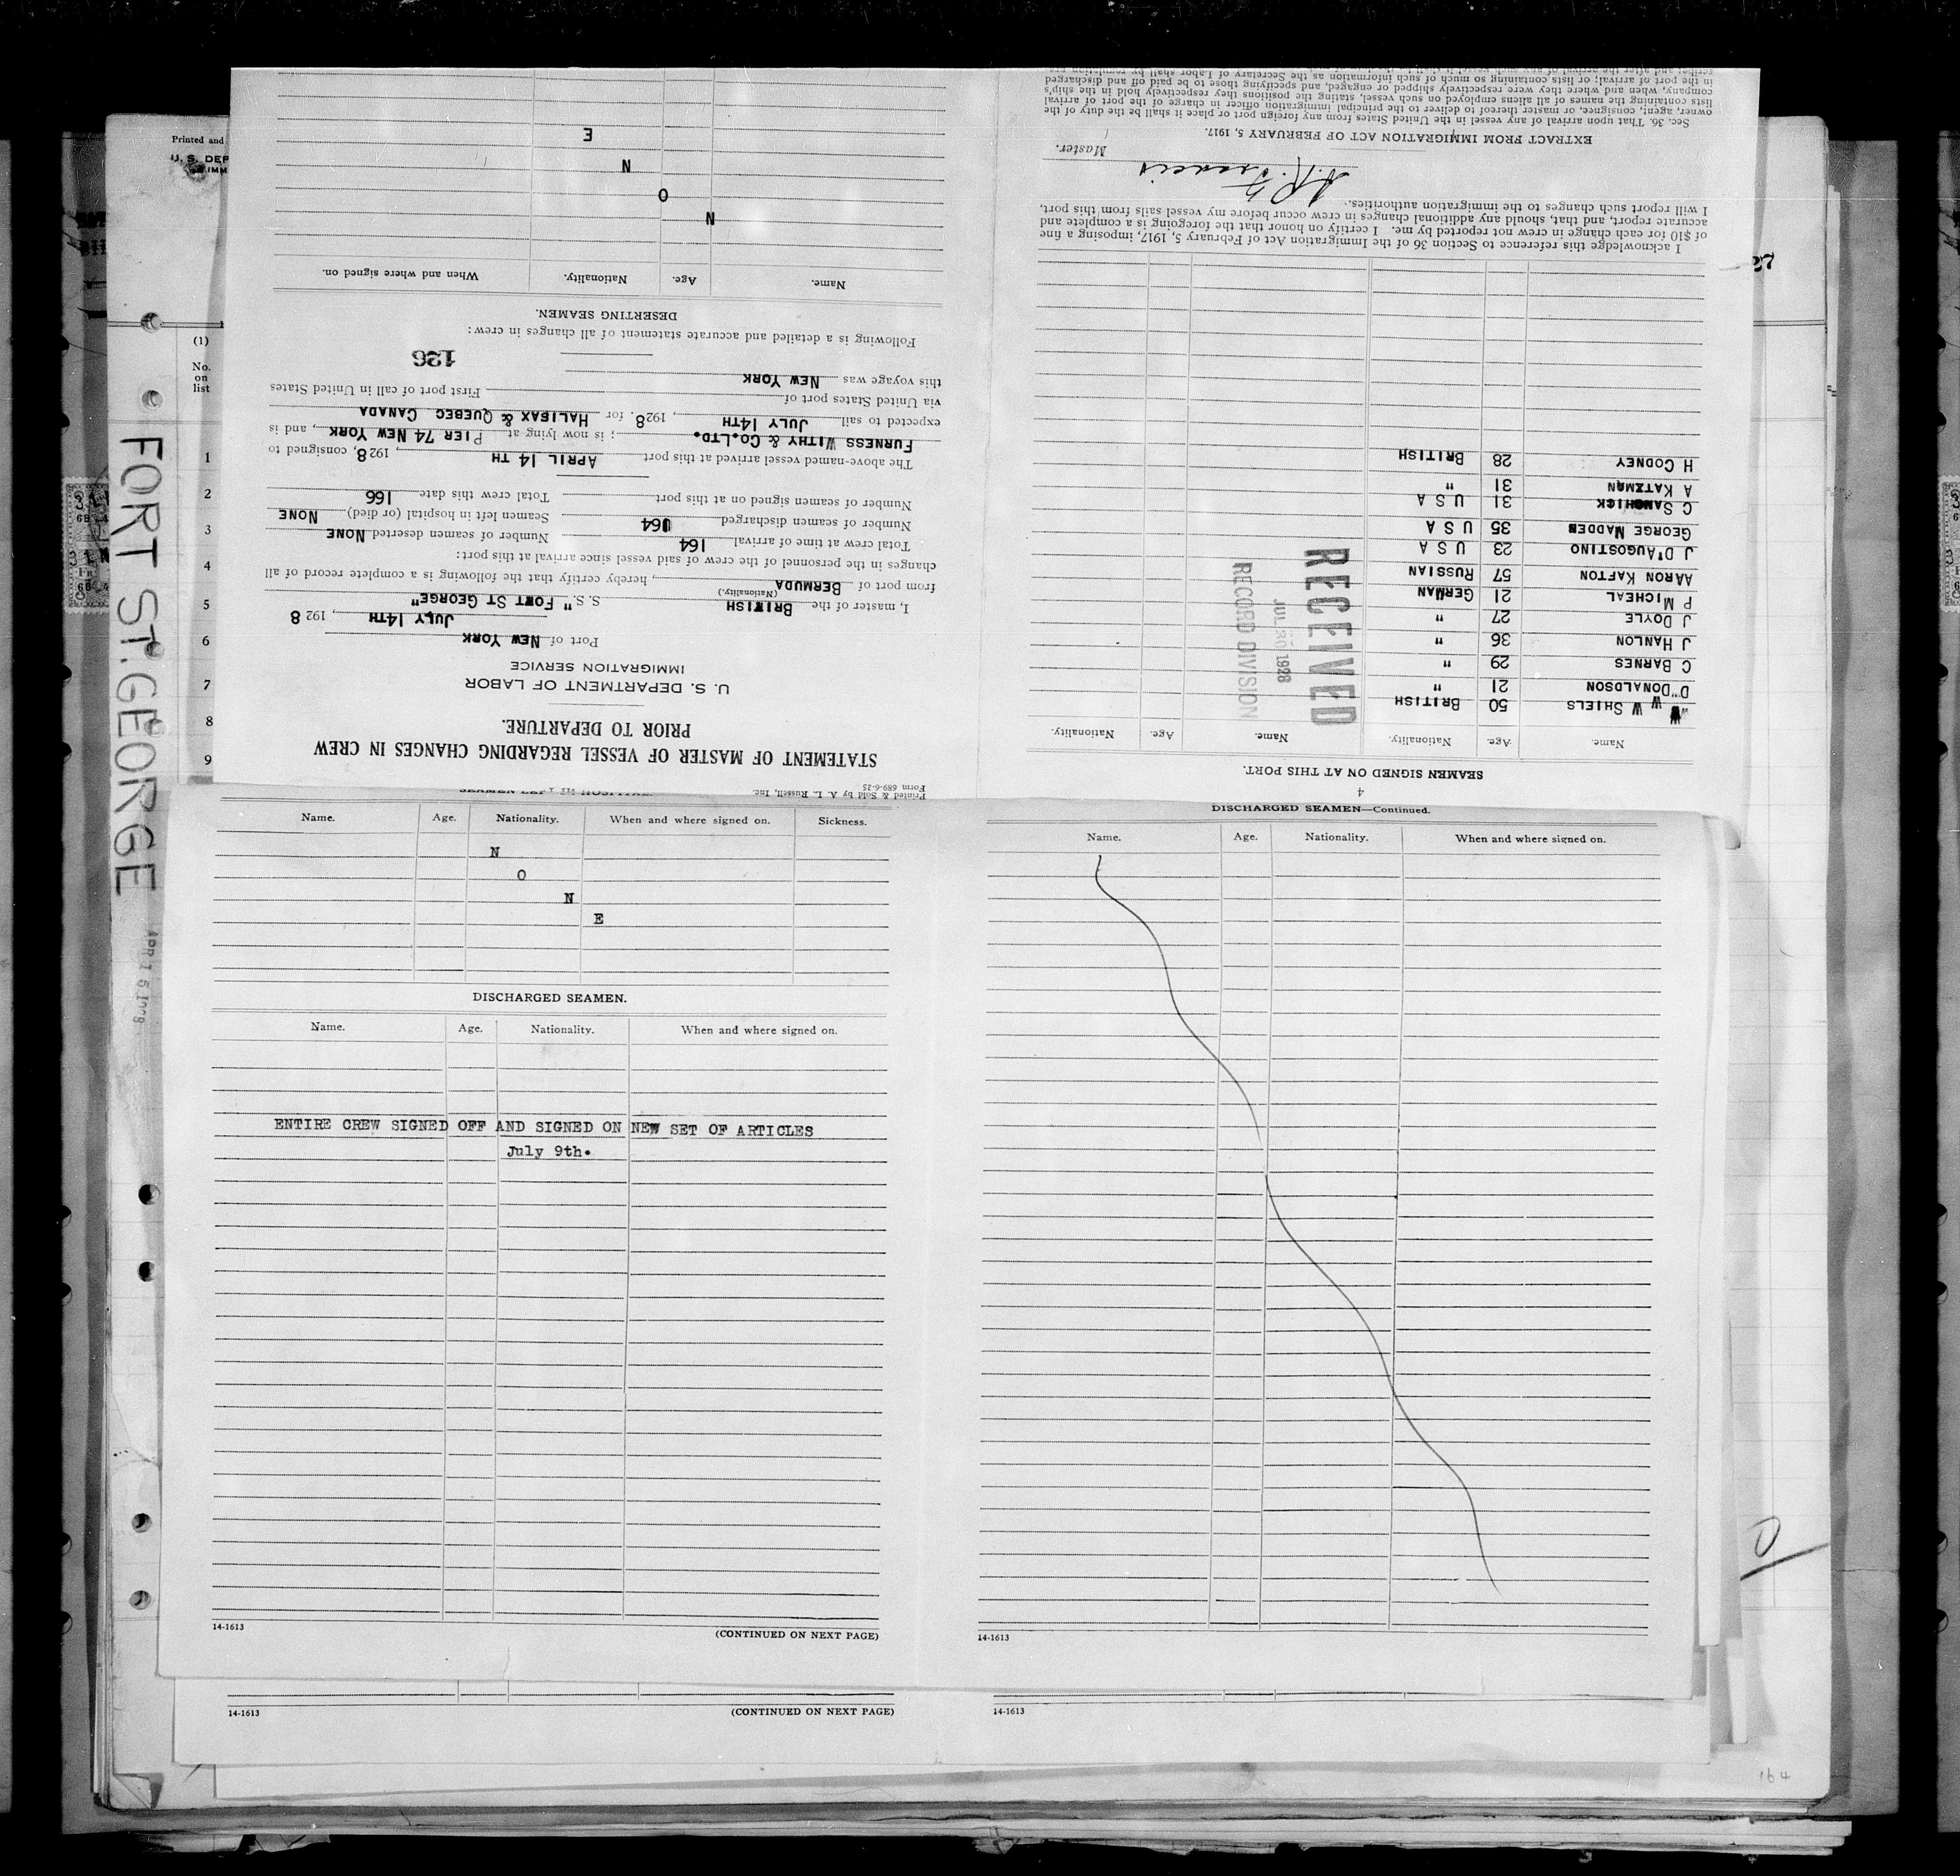 Form 689-6-25
Printed & Sold by A. L. Russell, Inc.
STATEMENT OF MASTER OF VESSEL REGARDING CHANGES IN CREW
PRIOR TO DEPARTURE.
U. S. DEPARTMENT OF LABOR
IMMIGRATION SERVICE
Port of NEW YORK
JULY 14TH, 1928
I, master of the BRITISH S. S. "FORT ST GEORGE"
(Nationality.)
from port of BERMUDA, hereby certify that the following is a complete record of all
changes in the personnel of the crew of said vessel since arrival at this port:
Total crew at time of arrival 164 Number of seamen deserted NONE
Number of seamen discharged 164 Seamen left in hospital (or died) NONE
Number of seamen signed on at this port Total crew this date 166
The above-named vessel arrived at this port APRIL 14 TH, 1928, consigned to
FURNESS WITHY & CO. LTD. ; is now lying at PIER 74 NEW YORK, and is
expected to sail JULY 14TH, 1928. for HALIFAX & QUEBEC CANADA
via United States port of First port of call in United States
this voyage was NEW YORK
126
Following is a detailed and accurate statement of all changes in crew:
DESERTING SEAMEN.
Name. Age. Nationality. When and where signed on.
N
O
N
E
4
SEAMEN SIGNED ON AT THIS PORT.
Name. Age. Nationality. Name. Age. Nationality.
W W SHIELS 50 BRITISH
D"DONALDSON 21 "
C BARNES 29 "
J HANLON 36 "
J DOYLE 27 "
P MICHEAL 21 GERMAN
AARON KAFTKAN 57 RUSSIAN
J D'AUGOSTINO 23 U S A
GEORGE MADDEN 35 U S A
C 31 U S A
A KATZMAN 31 "
H CODNEY 28 BRITISH
RECEIVED
JUL 30 1928
RECORD DIVISION
I acknowledge this reference to Section 36 of the Immigration Act of February 5, 1917, imposing a fine
of $10 for each change in crew not reported by me. I certify on honor that the foregoing is a complete and
accurate report, and that, should any additional changes in crew occur before my vessel sails from this port,
I will report such changes to the immigration authorities.
Francis
Master.
EXTRACT FROM IMMIGRATION ACT OF FEBRUARY 5, 1917.
Sec. 36. That upon arrival of any vessel in the United States from any foreign port or place it shall be the duty of the
owner, agent, consignee, or master thereof to deliver to the principal immigration officer in charge of the port of arrival
lists containing the names of all aliens employed on such vessel, stating the positions they respectively hold in the ship's
company, when and where they were respectively shipped or engaged, and specifying those to be paid off and discharged
in the port of arrival; or lists containing so much of such information as the Secretary of Labor shall by regulation pre-
Printed and
U. S. DEP
IMM
(1)
No.
on
list
1
2
3
4
5
6
7
8
9
FORT ST. GEORGE
SEAMEN LEFT IN HOSPITAL
Name. Age. Nationality. When and where signed on. Sickness.
N
O
N
E
DISCHARGED SEAMEN.
Name. Age. Nationality. When and where signed on.
ENTIRE CREW SIGNED OFF AND SIGNED ON NEW SET OF ARTICLES
July 9th.
14-1613 (CONTINUED ON NEXT PAGE)
DISCHARGED SEAMEN—Continued.
Name. Age. Nationality. When and where signed on.
14-1613
14-1613 (CONTINUED ON NEXT PAGE)
14-1613
164